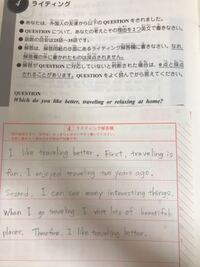 4 ライティング
● あなたは、外国人の友達から以下のQUESTIONをされました。
● QUESTIONについて、あなたの考えとその理由を2つ英文で書きなさい。
● 語数の目安は25語~35語です。
● 解答は、解答用紙の裏面にあるライティング解答欄に書きなさい。なお、
解答欄の外に書かれたものは採点されません。
● 解答がQUESTIONに対応していないと判断された場合は、0点と採点
されることがあります。QUESTIONをよく読んでから答えてください。
QUESTION
Which do you like better, traveling or relaxing at home?
4 ライティング解答欄
I like traveling better. First, traveling is
fun. I enjoyed traveling two years ago.
Second, I can see many interesting things.
When I go traveling, I visit lots of beautiful
places. Therefore, I like traveling better.